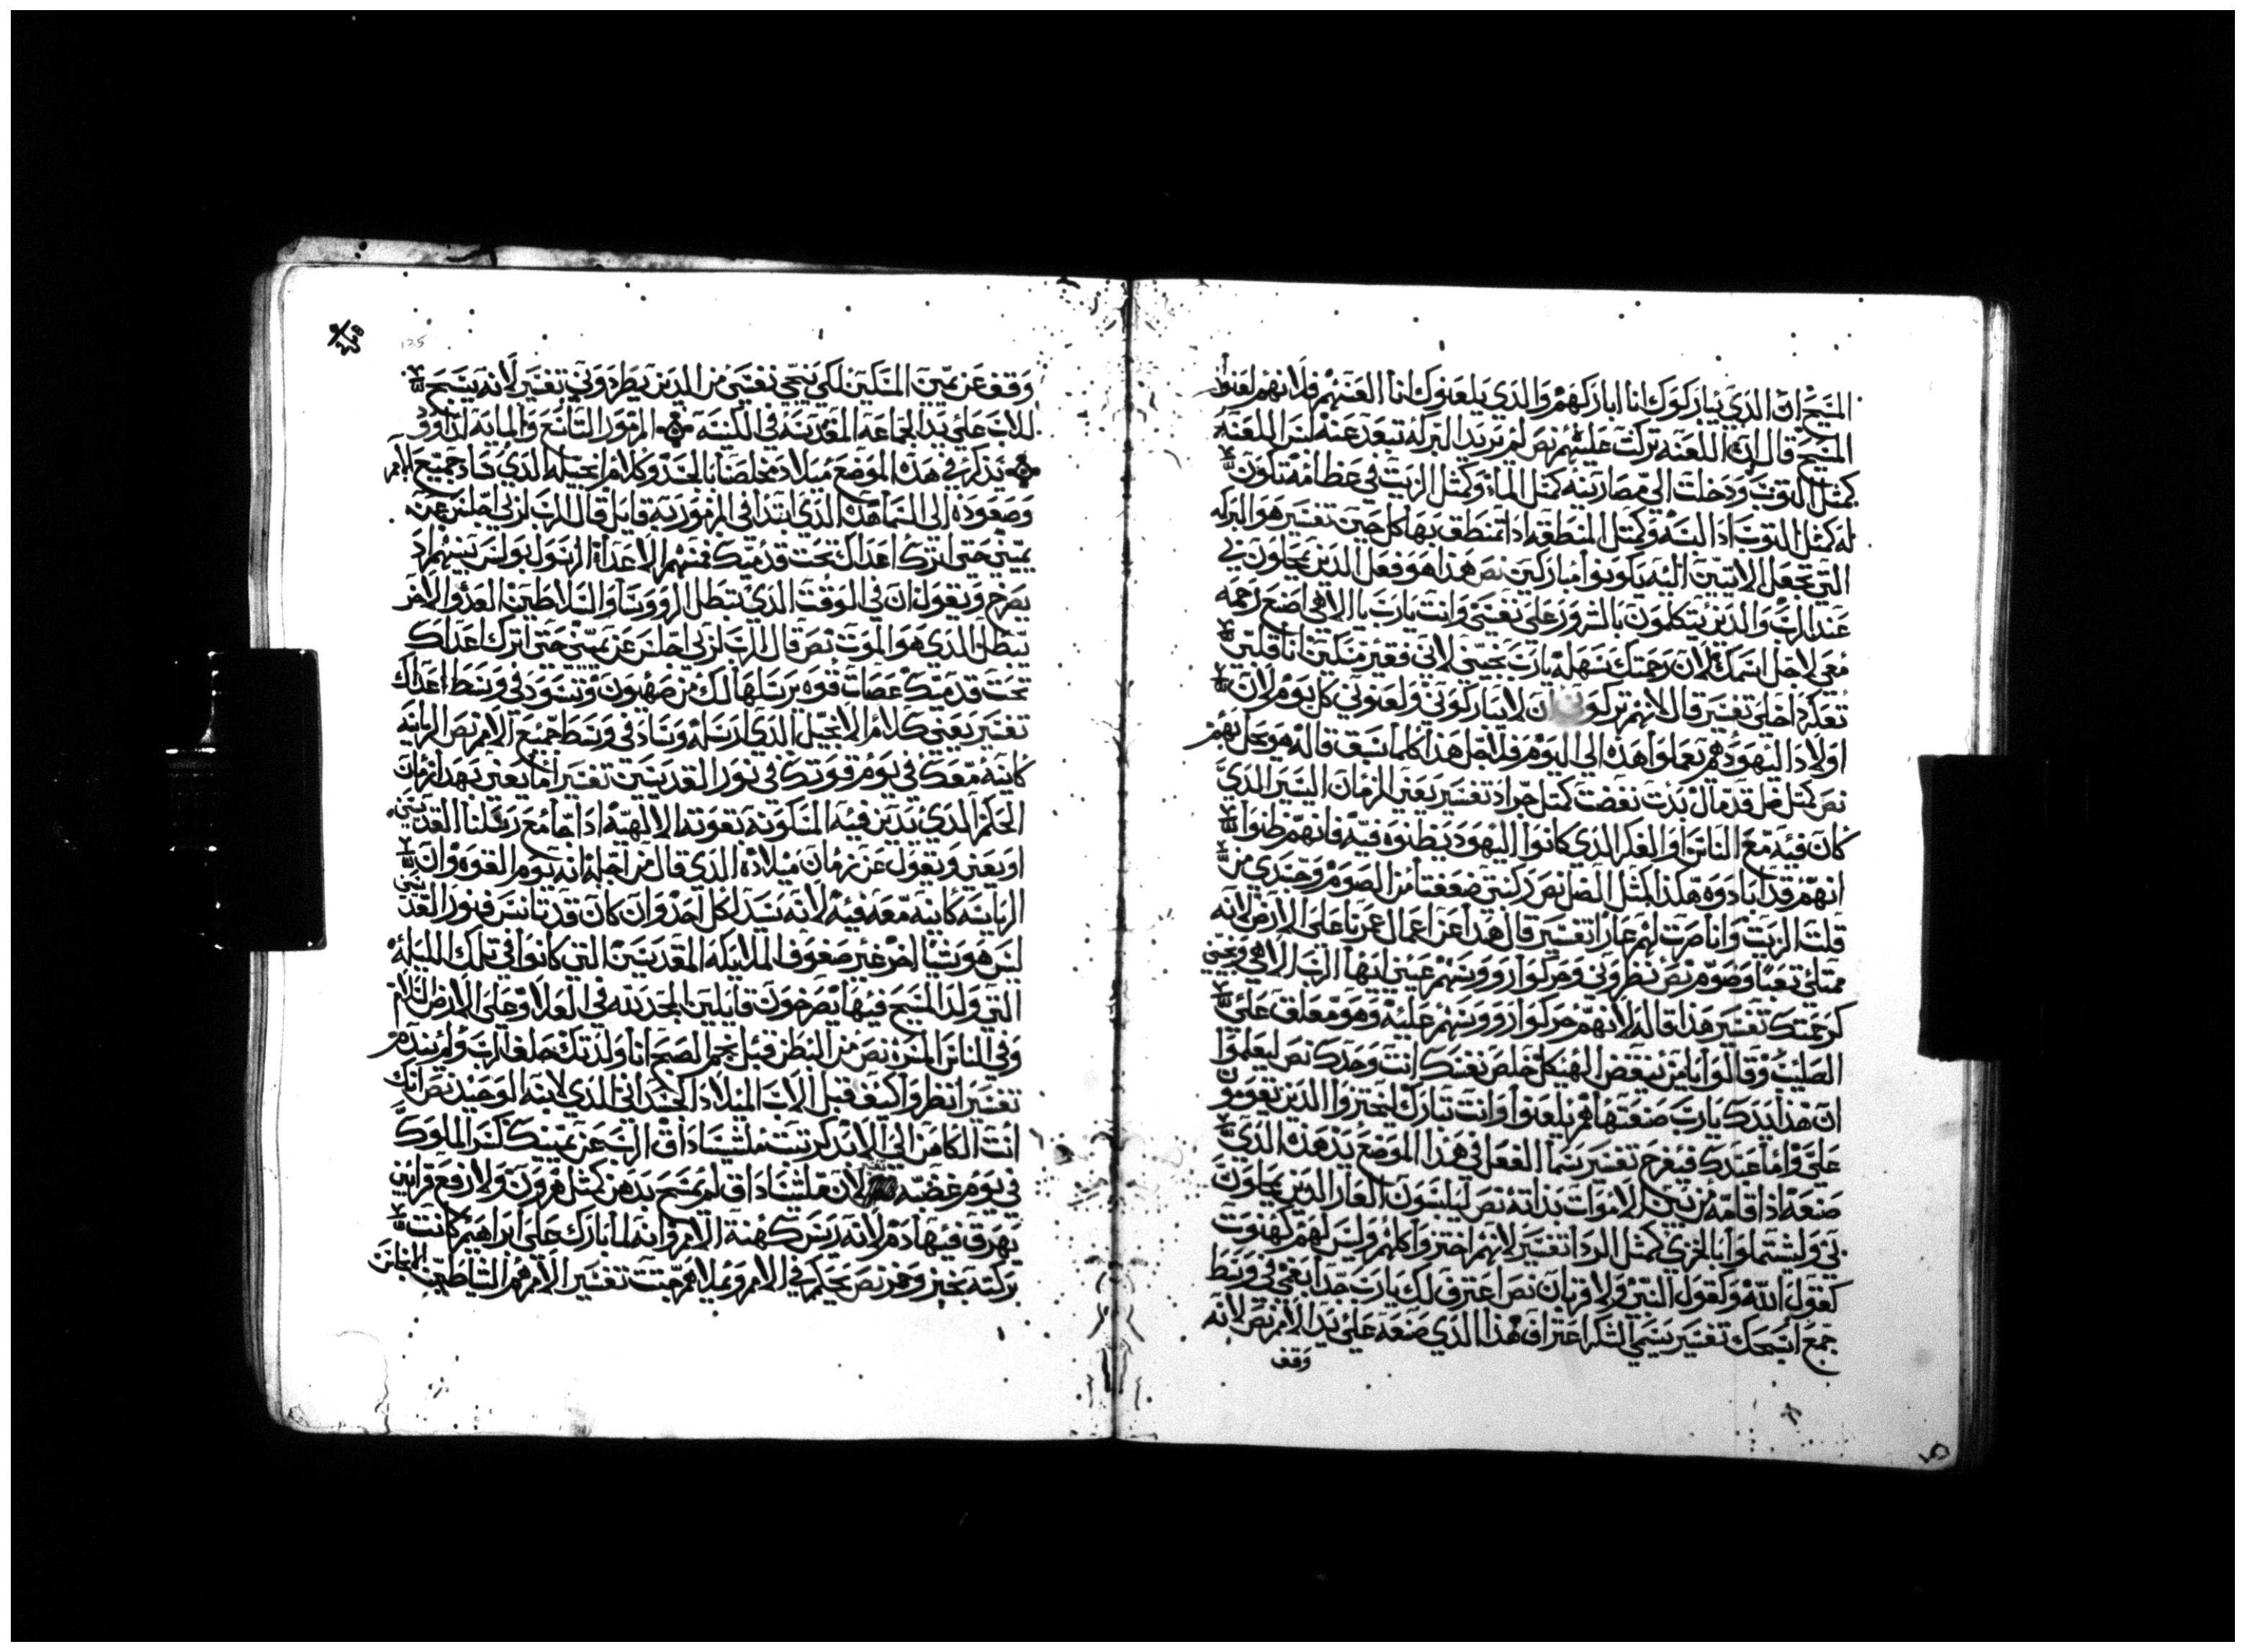 المسيح ان الذي يباركوك انا اباركهم والذي يلعنوك انا العنهم فلانهم لعنوا
المسيح قال ان اللعنه نزلت عليهم نص لم يريد البركه تبعد عنه لبس اللعنه
كمثل التوب ودخلت الي مصارينه كمثل الماء وكمثل الزيت في عظامه تكون
له كمثل التوب اذا لبسه وكمثل المنطقه اذا تمنطق بها كل حين تفسير هو البركه
التي تجعل الاتيين اليه يكونوا مباركين نص هذا هو فعل الذين يمحلون بي
عند الرب والذين يتكلمون بالشرور علي نفسي وانت يارب يا الاهي اصنع رحمه
معي لاجل اسمك لان رحمتك سهله يارب نجيني لاني فقير مسكين انا قلبي
تعكر داخلي تفسير قال لانهم تركوني ان لا يباركوني ولعنوني كل يوم لان
اولاد اليهود هم يعملوا هذه الي اليوم فلاجل هذا كلما سبق قاله هو يحل بهم
نص كمثل ظل قد مال بدت نفضت كمثل جراد تفسير يعني الزمان اليسير الذي
كان فيه مع الناس او الفكر الذي كانوا اليهود يظنوه فيه فانهم ظنوا
انهم قد ابادوه هكذا كمثل الضل نص ركبتي ضعفتا من الصوم وجسدي من
قلت الزيت وانا صرت لهم عارا تفسير قال هذا عن اعمال عمرنا علي الارض لانه
ممتلي تعبا وصوم نص نظروني وحركوا رووسهم عيني ايها الرب الاهي ونجيني
كرحمتك تفسير هذا قاله لانهم حركوا رووسهم عليه وهو معلق علي
الصليب وقالوا يا من ينقض الهيكل خلص نفسك انت وحدك نص ليعلموا
ان هذا يدك يارب صنعتها هم يلعنوا وانت تبارك ليخزوا الذين يقومون
علي واما عبدك فيفرح تفسير سما الفعل في هذا الموضع يد هذه الذي
صنعه اذا قامه من بين الاموات بذاته نص ليلبسون العار الذين يمحلون
بي وليشتملوا بالخزي كمثل الردا تفسير لانهم اختزوا كلهم وليس لهم كهنوت
كقول الله وكقول النبي ولا قربان نص اعترف لك يارب جدا بفمي في وسط
جمع اسبحك تفسير يسمي الشكر اعتراف هذا الذي صنعه علي يد الامم نص لانه
وقف
125
وقف عن يمين المسكين لكي ينجي نفسي من الذين يطردوني تفسير لانه يسبح
للاب علي يد الجماعه المقدسه في الكنيسه المزمور التاسع والمايه لداوود
يذكر في هذه الموضع ميلاد مخلصنا بالجسد وكلام انجيله الذي قاد جميع الامم
وصعوده الي السما هذه الذي ابتدا في المزمور به قايل قال الرب لربي اجلس عن
يميني حتي اترك اعداك تحت قدميك فمنهم الاعداء الرسول بولس يسهم اذ
يصرخ ويقول ان في الوقت الذي تبطل الرووسا والسلاطين العدو الاخر
يبطل الذي هو الموت نص قال الرب لربي اجلس عن يميني حتي اترك اعداك
تحت قدميك عصات قوه يرسلها لك من صهيون وتسود في وسط اعداك
تفسير يعني كلام الانجيل الذي ارسله وساد في وسط جميع الامم نص الرياسه
كاينه معك في يوم قوتك في نور القديسين تفسير اما يعني بهذا زمان
الحكم الذي يدين فيه المسكونه بقوته الالهيه اذا جا مع رسلنا القديسين
او يعني ويقول عن زمان ميلاده الذي قال من اجله انه يوم القوه وان
الرياسه كاينه معه فيه لانه سيد لكل احد وان كان قد تانس فنور القديسين
ليس هو شيا اخر غير صفوف الملايكه المقدسين التي كانوا في تلك الليله
التي ولد المسيح فيها يصرخون قايلين المجد لله في العلا وعلي الارض السلام
وفي الناس المسره نص من البطن قبل نجم الصبح انا ولدتك حلف الرب ولم يندم
تفسير انظروا كيف قبل الاب الميلاد الجسداني الذي لابنه الوحيد نص انك
انت الكاهن الي الابد كرتبت ملشيساداق الرب عن يمينك كسر الملوك
في يوم غضبه لان ملشيساداق لم يمسح بدهن كمثل هرون ولا رفع قرابين
يهرق فيها دم لانه ريس كهنة الامم وانه لما بارك علي ابراهيم كانت
بركته بخبز وخمر نص يحكم في الامم ويملا من جتت تفسير الامم هم الشياطين الانجاس